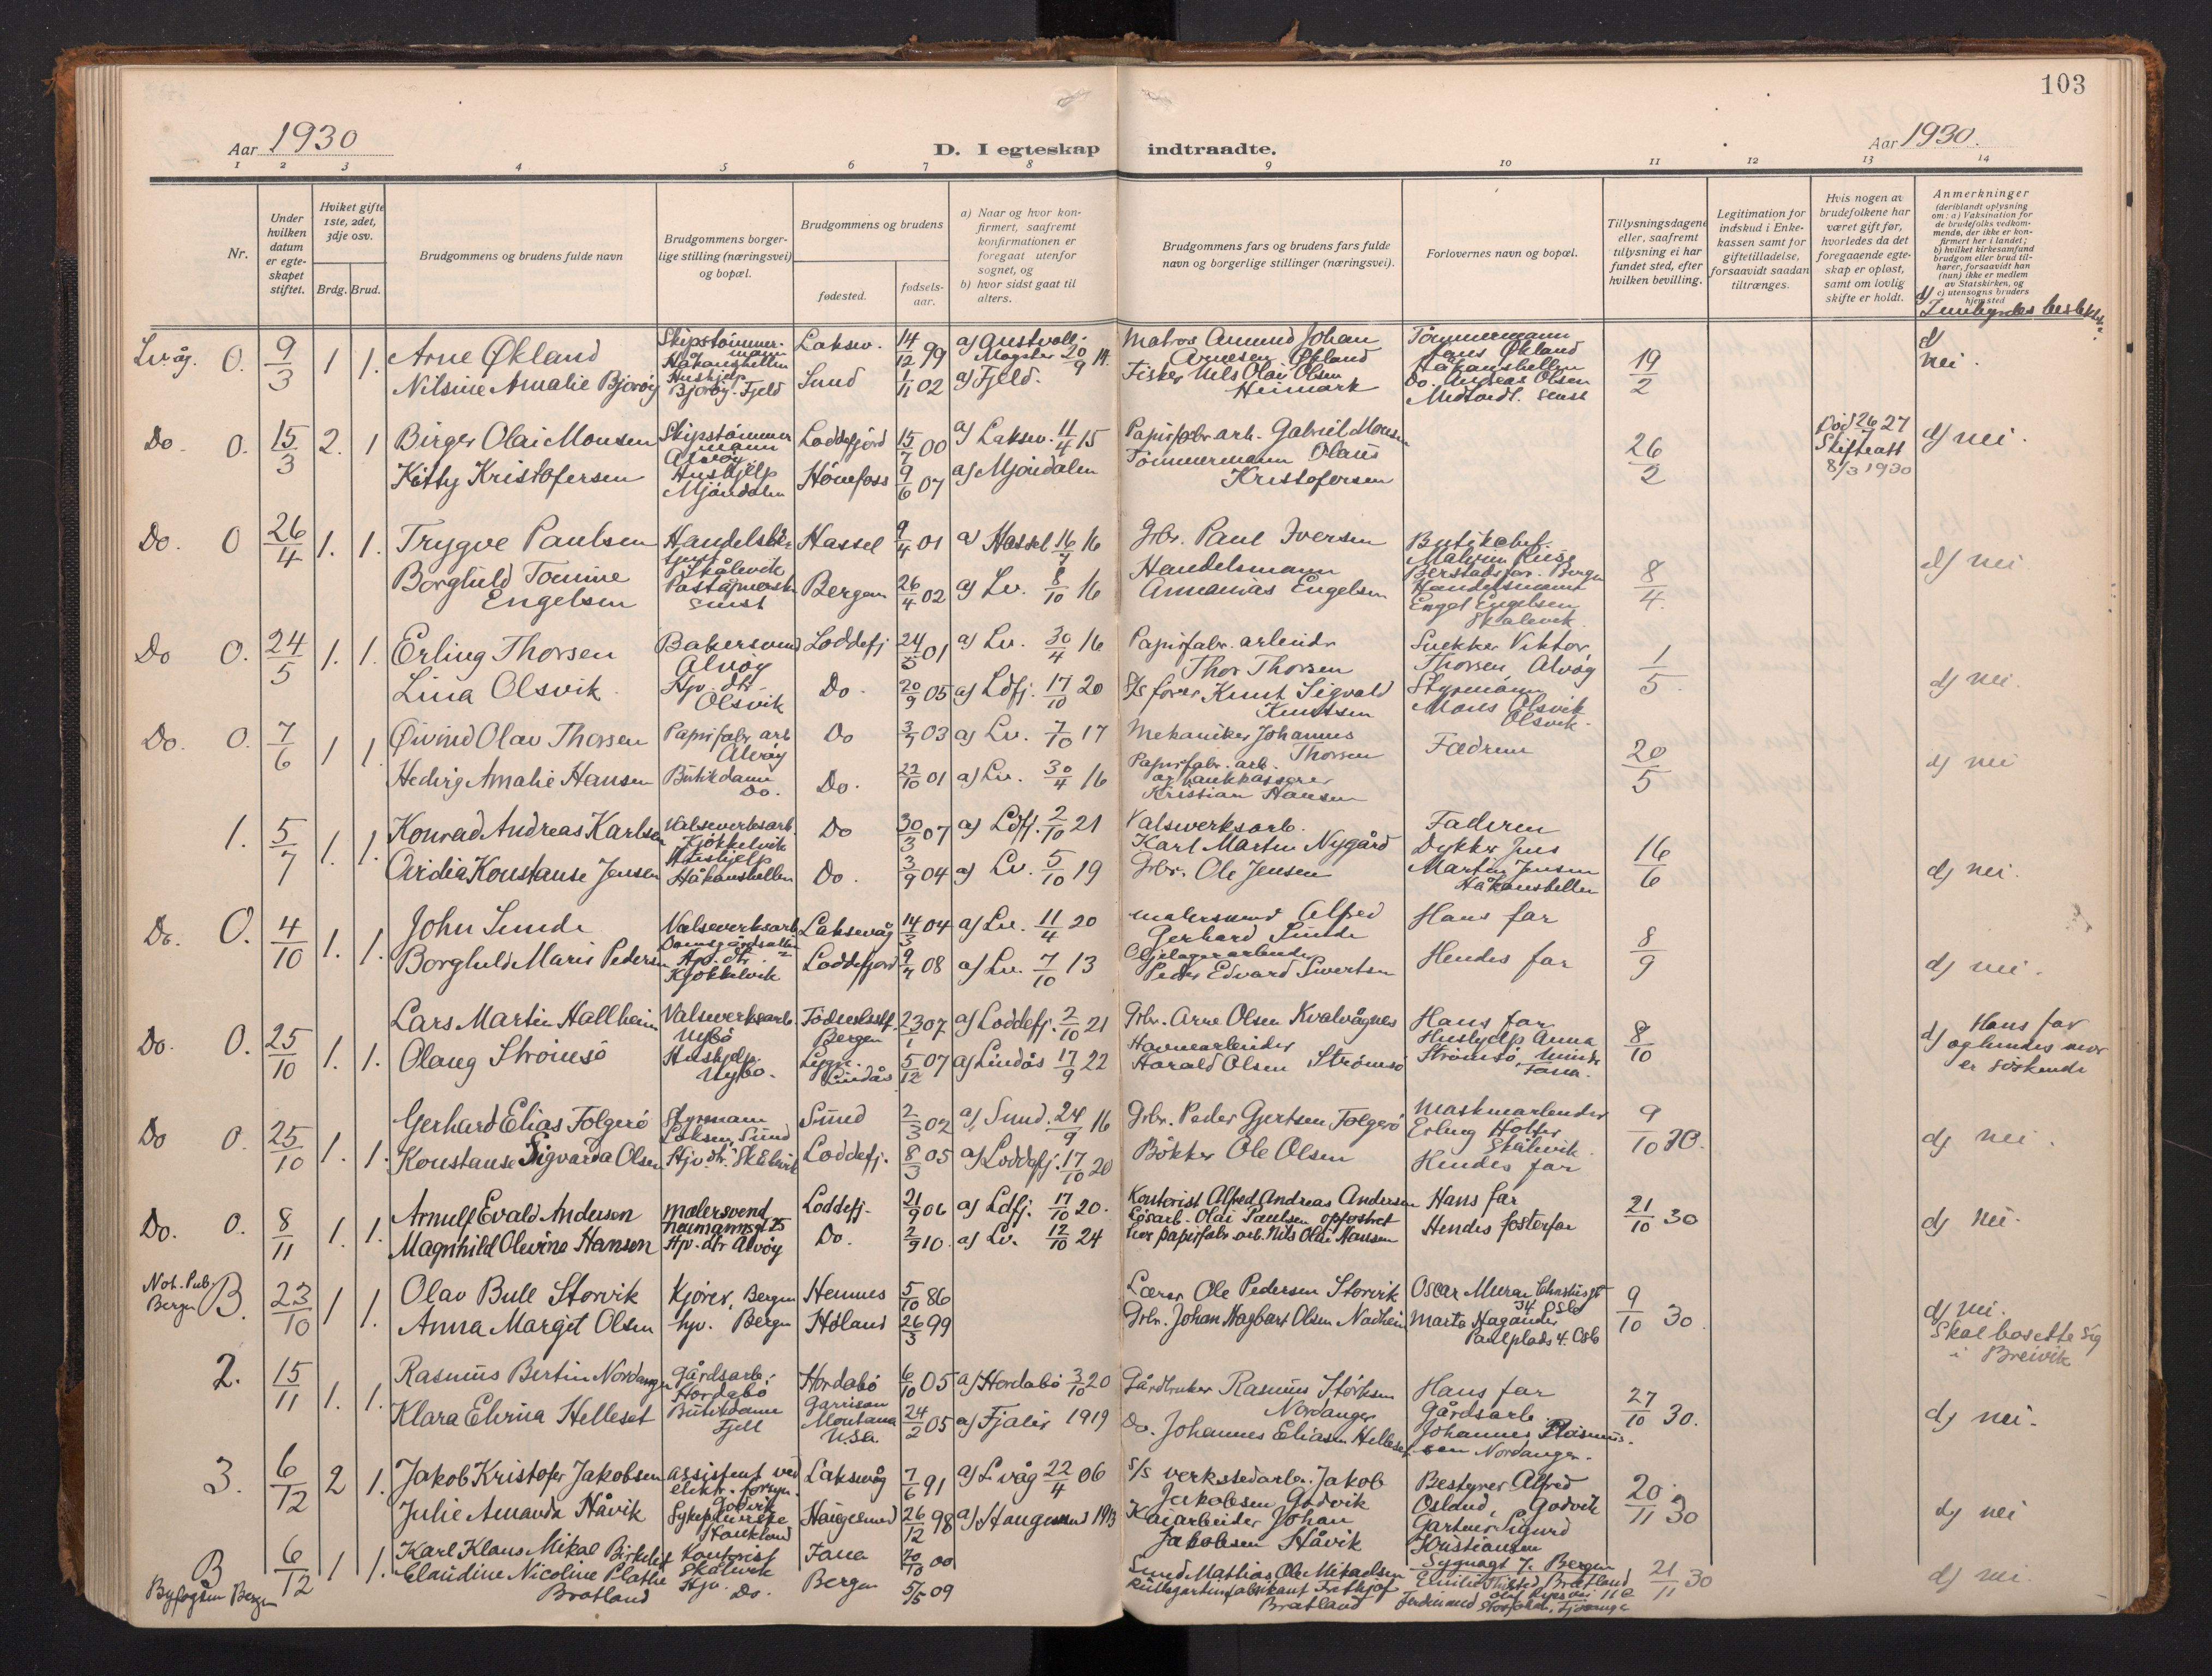 103
Aar 1930
D. I egteskap indtraadte.
Aar 1930.
1 2 3 4 5 6 7 8 9 10 11 12 13 14
Nr.
Under hvilken datum er egteskapet stiftet.
Hviket gifte 1ste, 2det, 3dje osv.
Brdg. Brud.
Brudgommens og brudens fulde navn
Brudgommens borgerlige stilling (næringsvei) og bopæl.
Brudgommens og brudens
fødested.
fødselsaar.
a) Naar og hvor konfirmert, saafremt konfirmationen er foregaat utenfor sognet, og
b) hvor sidst gaat til alters.
Brudgommens fars og brudens fars fulde navn og borgerlige stillinger (næringsvei).
Forlovernes navn og bopæl.
Tillysningsdagene eller, saafremt tillysning ei har fundet sted, efter hvilken bevilling.
Legitimation for indskud i Enkekassen samt for giftetilladelse, forsaavidt saadan tiltrænges.
Hvis nogen av brudefolkene har været gift før, hvorledes da det foregaaende egteskap er opløst, samt om lovlig skifte er holdt.
Anmerkninger
(deriblandt oplysning om: a) Vaksination for de brudefolks vedkommende, der ikke er konfirmert her i landet; b) hvilket kirkesamfund brudgom eller brud tilhører, forsaavidt han (hun) ikke er medlem av Statskirken, og c) utensogns bruders hjemsted
Lv.åg. 0. 9/3 1 1. Arne Økland Skipstømmermann Håkonshellen Laksev. 14/12 99 a) Austvoll Møgster 20/9 14. Matros Amund Johan Arnesen Økland Tømmermann Jens Økland Håkonshellen 19/2 d) nei.
Nilsine Amalie Bjorøy Hushjelp Bjorøy. Fjeld Sund 1/11 02 a) Fjeld. Fisker Nils Olai Olsen Heimark Do. Andreas Olsen
Do. 0. 15/3 2. 1 Birger Olai Monsen Skipstømmermann Alvøy Loddefjord 15/7 00 a) Laksev. 11/4 15 Papirfabr. arb. Gabriel Monsen 26/2 Død 26/7 27 Skifteatt 8/3 1930 d) nei.
Kitty Kristofersen Hushjelp Mjøndalen Hønefoss 9/6 07 a) Mjøndalen Tømmermann Olaus Kristofersen
Do. 0 26/4 1. 1. Trygve Paulsen Skålevik Hassel 9/4 01 a) Hassel 16/7 16 Gbr. Paul Iversen Butikchef Bergen 8/4. d) nei.
Borghild Tomine Engelsen Bergen 26/4 02 a) Lv. 8/10 16 Handelsmann Annanias Engelsen Handelsmann Engel Engelsen Skålevik.
Do 0. 24/5 1. 1. Erling Thorsen Bakersvend Alvøy Loddefj 24/5 01 a) Lv. 30/4 16 Papirfabr. arbeider Thor Thorsen Snekker Viktor Thorsen Alvøy 1/5 d) nei.
Lina Olsvik. Hjv. dtr. Olsvik Do. 20/9 05 a) Ldfj. 17/10 20 S/s fører Knut Sigvald Knutsen Styrmann Mons Olsvik Olsvik.
Do. 0. 7/6 1 1. Øivind Olav Thorsen Papirfabr arb Alvøy Do 3/7 03 a) Lv. 7/10 17 Mekaniker Johannes Thorsen Fædrene 20/5 d) nei
Hedvig Amalie Hansen Butikdame Do. Do. 22/10 01 a) Lv. 30/4 16 Papirfabr. arb. Kristian Hansen
1. 5/7 1. 1. Konrad Andreas Karlsen Valseverksarb. Kjøkkelvik Do 30/3 07 a) Ldfj. 2/10 21 Valsverksarb. Karl Martin Nygård Faderen 16/6 d) nei.
Ovidia Konstanse Jensen Hushjelp Håkonshellen Do. 3/9 04 a) Lv. 5/10 19 Gbr. Ole Jensen Dykker Jens Martin Jensen Håkonshellen
Do. 0. 4/10 1. 1. John Sunde Valseverksarb. Laksevåg 14/3 04 a) Lv. 11/4 20 Malersvend Alfred Gerhard Sunde Hans far 8/9 d) nei.
Borghild Marie Pedersen Hjv. dtr. Kjøkkelvik Loddefjord 9/7 08 a) Lv. 7/10 13 Oljelagerarbeider Peder Edvard Sivertsen Hendes far
Do. 0. 25/10 1. 1. Lars Martin Hallheim Valseverksarb. Nybø Fødselsst. Bergen 23/1 07 a) Loddefj. 2/10 21 Gbr. Arne Olsen Kvalvågnes Hans far 8/10 d) Hans far og hendes mor er søskende
Olaug Strømsø Hushjelp Nybø. Lindås 5/12 07 a) Lindås 17/9 22 Havnearbeider Harald Olsen Strømsø Hushjelp Anna Strømsø, Minde Fana.
Do 0. 25/10 1. 1. Gerhard Elias Folgerø Styrmann Sund Sund 2/3 02 a) Sund. 24/9 16 Gbr. Peder Gjertsen Folgerø Maskinarbeider Erling Holter Skålevik 9/10 30. d) nei.
Konstanse Sigvarda Olsen Hjv. dtr. Skålevik Loddefj. 8/3 05 a) Loddefj. 17/10 20 Bøkker Ole Olsen Hendes far
Do. 0. 8/11 1. 1. Arnulf Evald Andersen Malersvend Neumannsgt 25 Loddefj. 21/9 06 a) Ldfj. 17/10 20. Kontorist Alfred Andreas Andersen Hans far 21/10 30 d) nei.
Magnhild Olevine Hansen Hjv. dtr Alvøy Do. 2/9 10. a) Lv. 12/10 24 Løsarb. Olai Paulsen opfostret hos papirfabr. arb. Nils Olai Hansen Hendes fosterfar
Not. Pub. Bergen B. 23/10 1 1. Olav Bull Storvik Kjører, Bergen Hemnes 5/10 86 Lærer Ole Pedersen Storvik 34 Oslo 9/10 30. d) nei. Skal bosette sig i Breivik
Anna Margit Olsen hjv. Bergen Høland 26/3 99 Gbr. Johan Hagbart Olsen Marta Hagander Paulplads 4. Oslo
2. 15/11 1. 1. Rasmus Bertin Nordanger Gårdsarb. Hordabø Hordabø 6/10 05 a) Hordabø 3/10 20 Gårdbruker Rasmus Størksen Nordanger Hans far 27/10 30. d) nei.
Klara Elvina Helleset Butikdame Fjell Garrison Montana U.S.A. 24/2 05 a) Fjaler 1919 Do. Johannes Eliasen Helleset Gårdsarb. Johannes Rasmussen Nordanger.
3. 6/12 2 1. Jakob Kristofer Jakobsen Assistent ved elektr. forsyn. Godvik Laksevåg 7/6 91 a) L.våg 22/4 06 S/s verkstedarb. Jakob Jakobsen Godvik Bestyrer Alfred Osland, Godvik 20/11 30 d) nei
Julie Amanda Håvik Sykepleierske Haugesund 26/12 98 a) Haugesund 1913 Kaiarbeider Johan Jakobsen Håvik Gartner Sigurd Kristiansen
B Byfogden Bergen 6/12 1 1. Karl Klaus Mikal Birkeland Kontorist Skålevik Fana 20/10 00 Smed Mathias Ole Mikaelsen Bergen 21/11 30 d) nei.
Claudine Nicoline Plathe Bratland Hjv. Do. Bergen 5/5 09 Fritjof Bratland Ferdinand